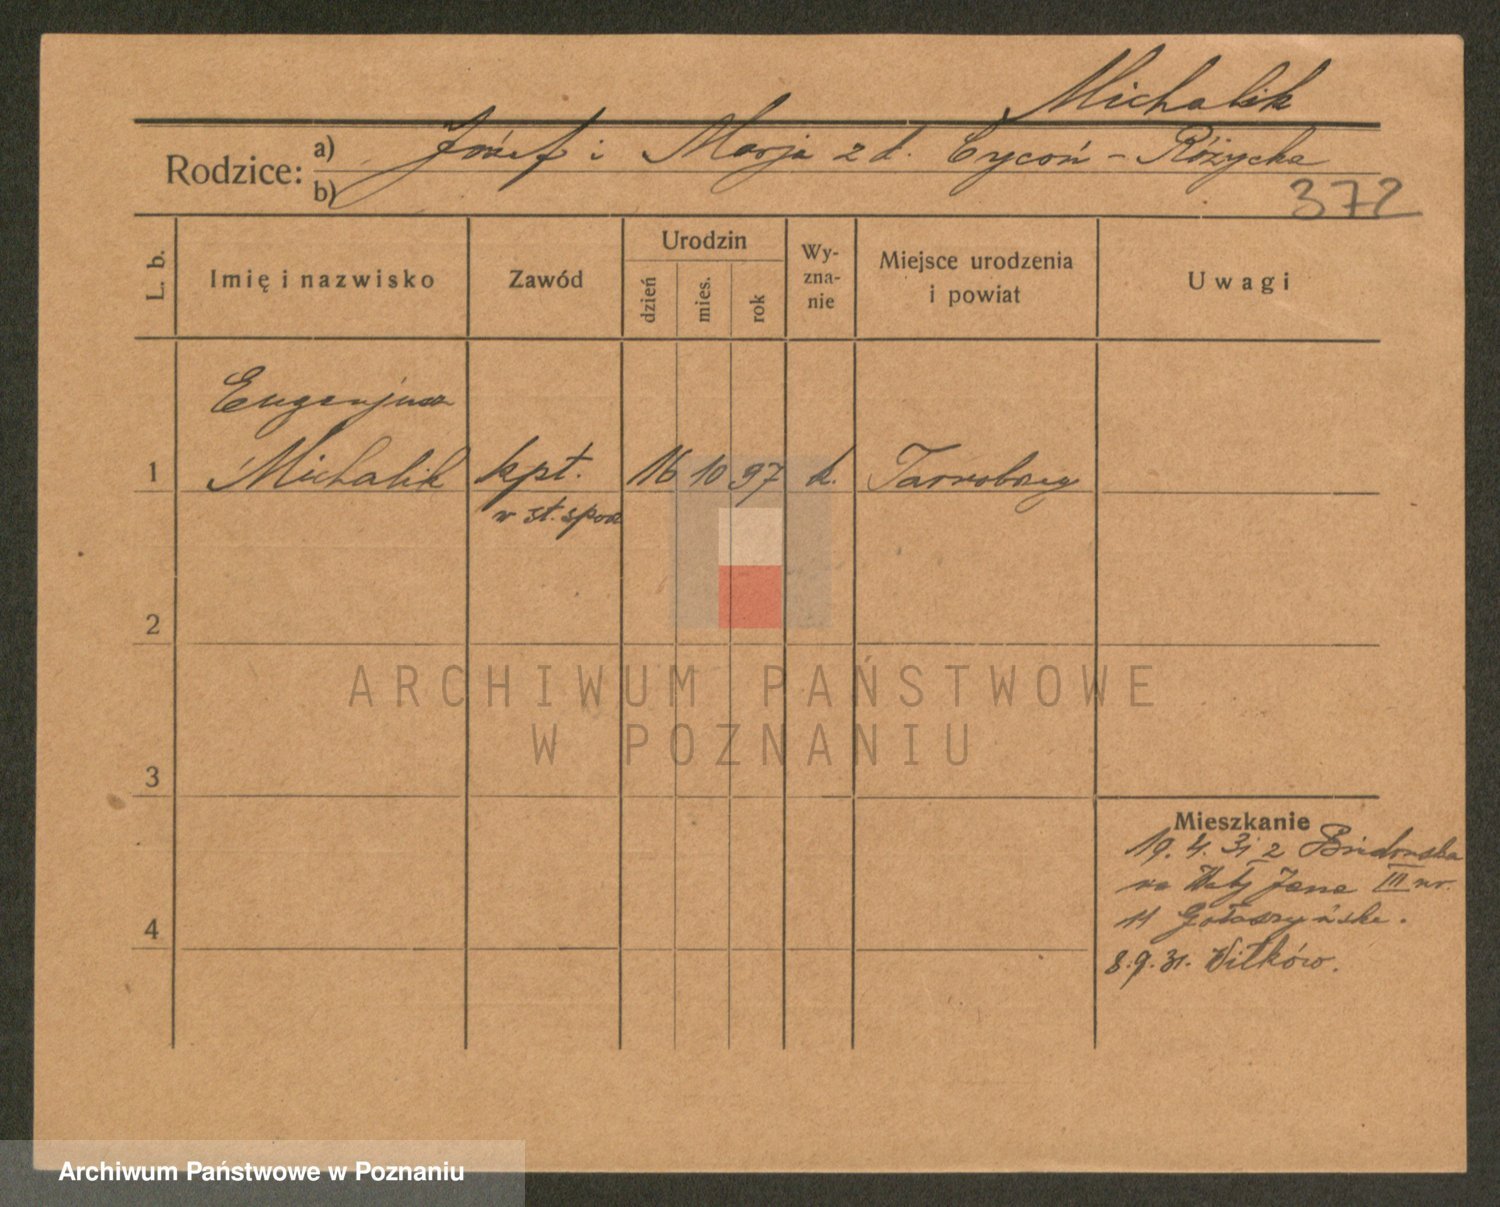 Michalik
Rodzice: a) Józef i Marja z d. Cycoń - Różycka
b)
372
L. b.
Imię i nazwisko
Zawód
Urodzin
dzień
mies.
rok
Wy-
zna-
nie
Miejsce urodzenia
i powiat
Uwagi
Eugenjusz
1 Michalik kpt. 16 10 97 k. Tarnobrzeg
w st. spocz
2
3
4
Mieszkanie
19. 4. 31 z
na Jana III nr.
11
8.9.31. Witków.
ARCHIWUM PAŃSTWOWE
W POZNANIU
Archiwum Państwowe w Poznaniu